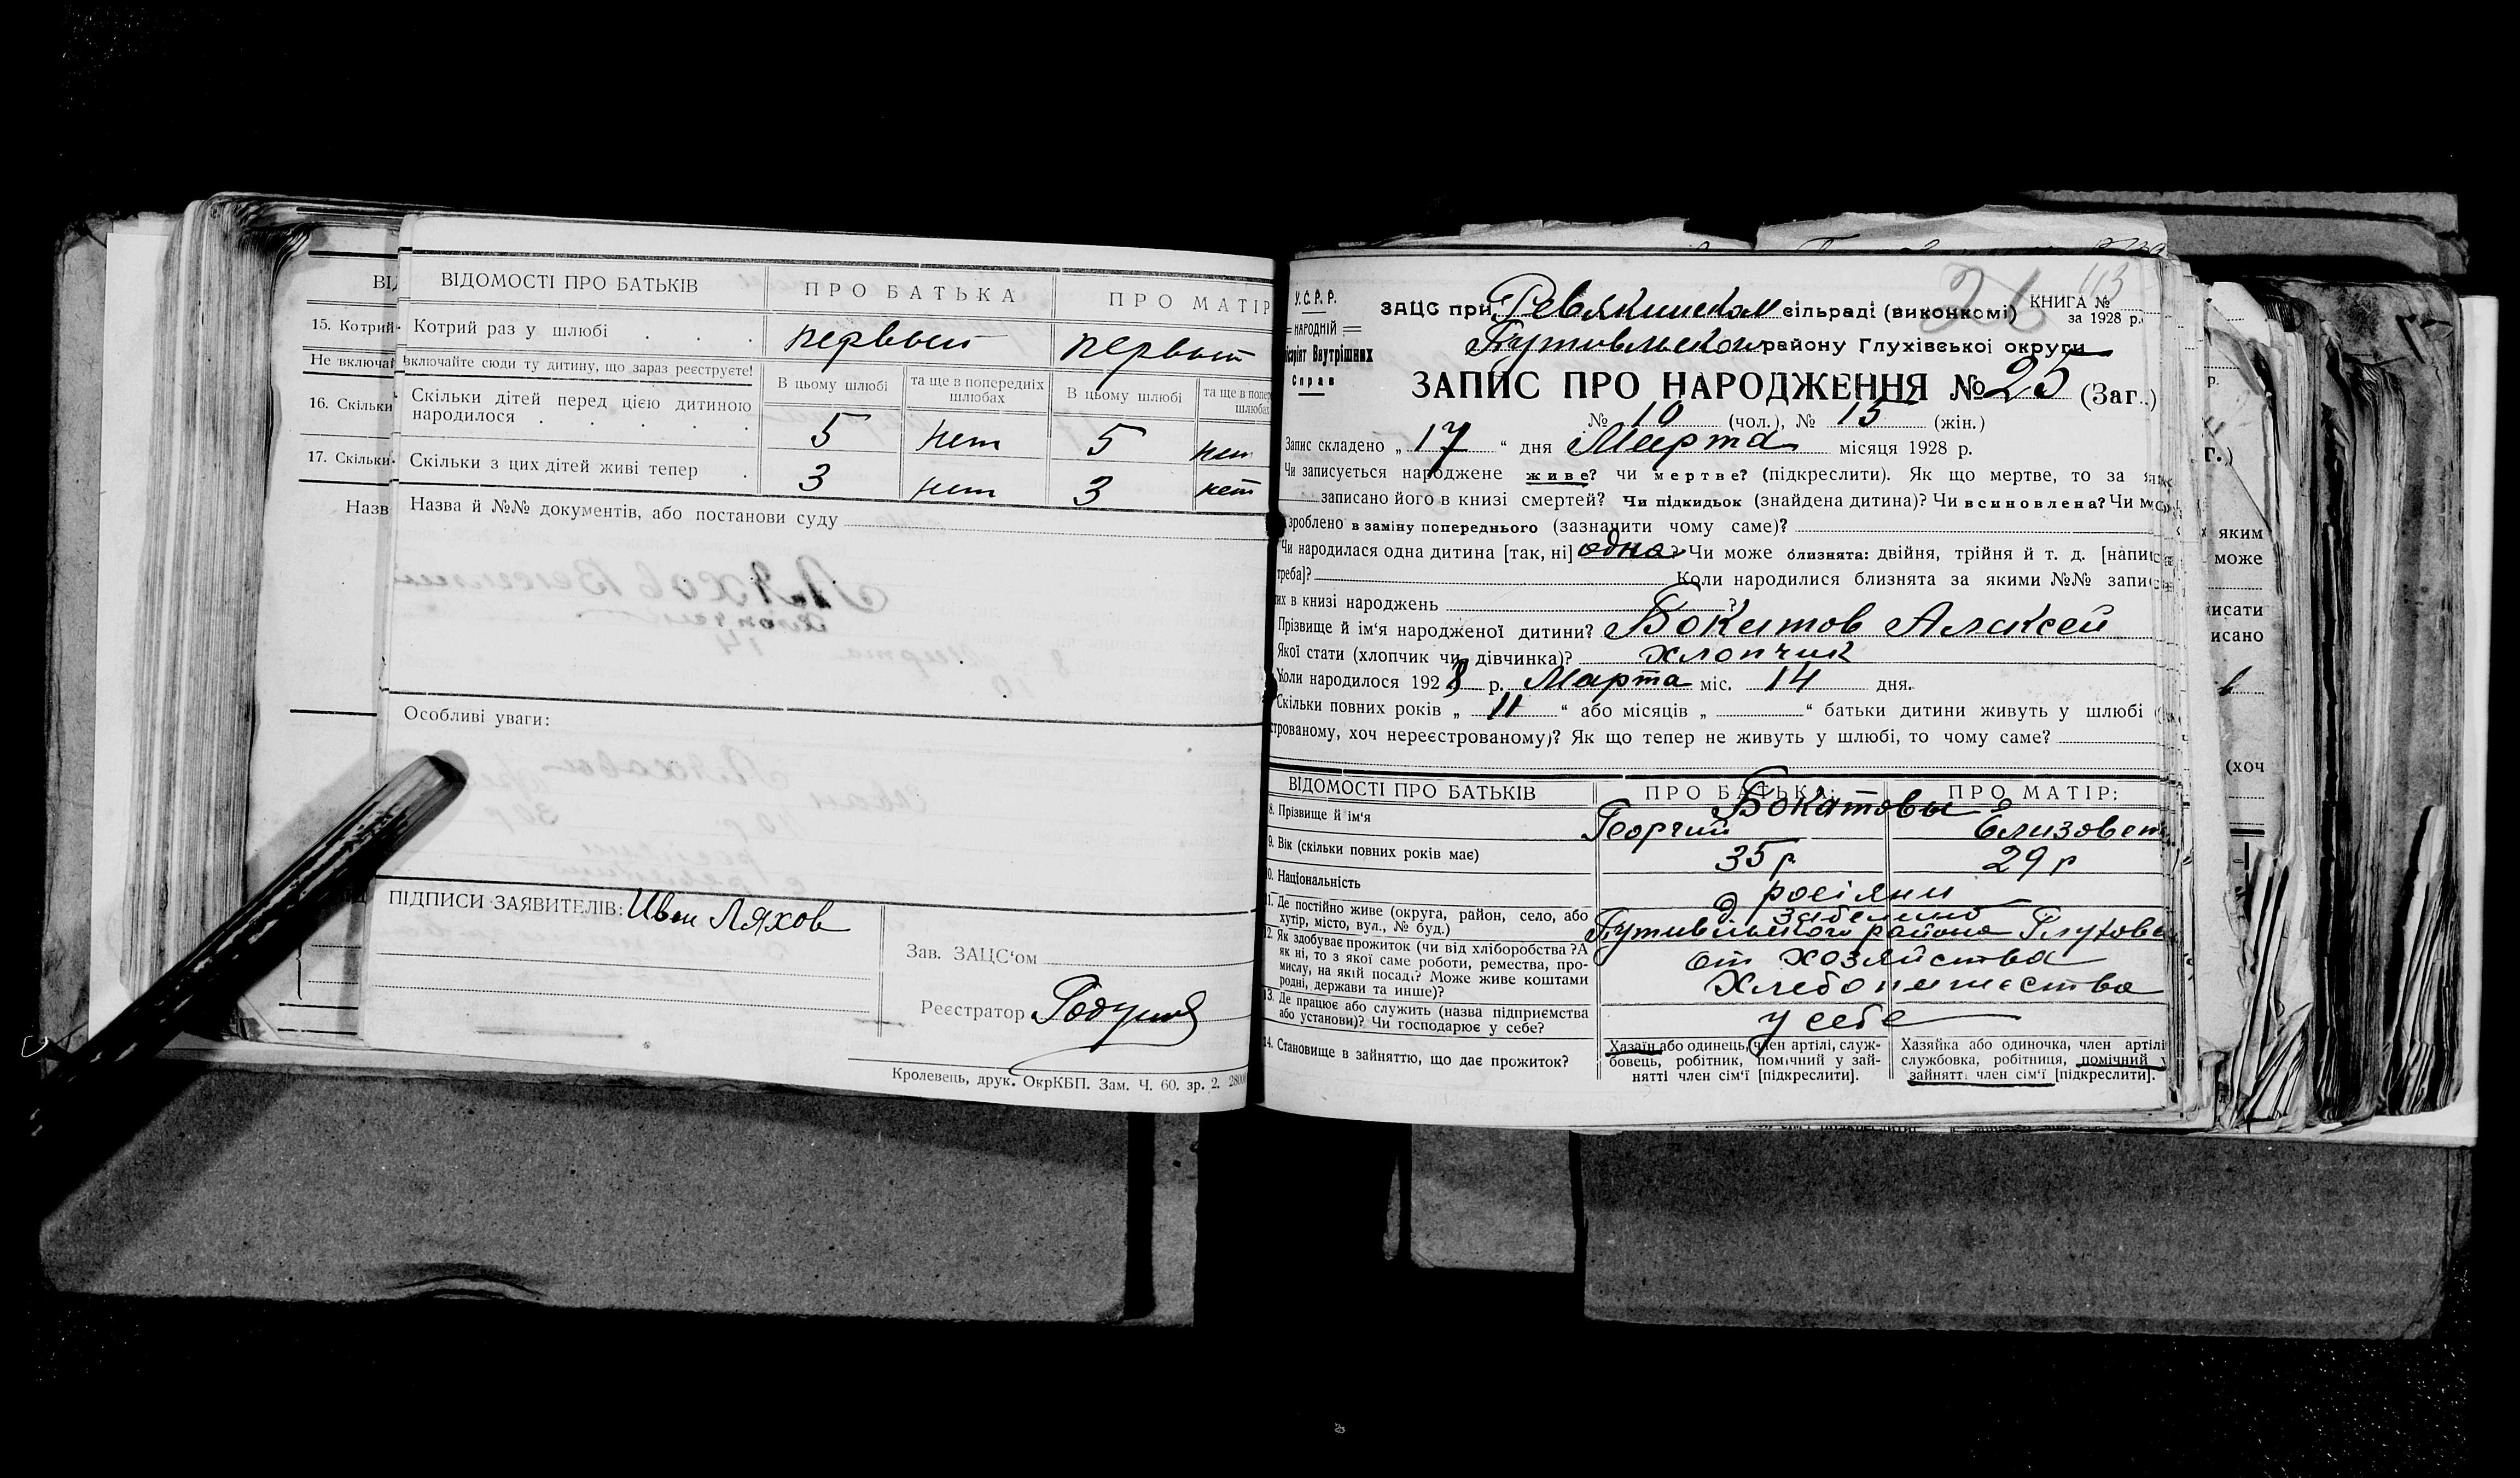 ВІДОМОСТІ ПРО БАТЬКІВ
ПРО БАТЬКА
ПРО МАТІР
15. Котрий
Котрий раз у шлюбі
первый
первый
Не включай
включайте сюди ту дитину, що зараз реєструєте!
В цьому шлюбі
та ще в попередніх шлюбах
В цьому шлюбі
та ще в попер
шлюбах
16. Скільки
Скільки дітей перед цією дитиною
народилося
5
нет
5
нет
17. Скільки
Скільки з цих дітей живі тепер
3
нет
3
нет
Назв
Назва й №№ документів, або постанови суду
Особливі уваги:
ПІДПИСИ ЗАЯВИТЕЛІВ: Иван Ляхов
Зав. ЗАЦС'ом
Реєстратор
Кролевець, друк. ОкрКБП. Зам. Ч. 60. зр. 2.
У.С.Р.Р.
НАРОДНІЙ
Внутрішних
Справ
26
113
ЗАЦС при Ревякинском сільраді (виконкомі)
КНИГА №
за 1928 р.
Путивльском району Глухівської округи
ЗАПИС ПРО НАРОДЖЕННЯ № 25 (Заг.)
№ 10 (чол.), № 15 (жін.)
Запис складено „ 17 “ дня Марта місяця 1928 р.
Чи записується народжене живе? чи мертве? (підкреслити). Як що мертве, то за
записано його в книзі смертей? Чи підкидьок (знайдена дитина)? Чи всиновлена? Чи
зроблено в заміну попереднього (зазначити чому саме)?
Чи народилася одна дитина [так, ні] одна? Чи може близнята: двійня, трійня й т. д. [напис
треба]? Коли народилися близнята за якими №№ запи
их в книзі народжень ?
Прізвище й ім'я народженої дитини? Бокатов Алексей
Якої стати (хлопчик чи дівчинка)? хлопчик
Коли народилося 1928 р. Марта міс. 14 дня.
Скільки повних років „ 11 “ або місяців „ “ батьки дитини живуть у шлюбі
трованому, хоч нереєстрованому)? Як що тепер не живуть у шлюбі, то чому саме?
ВІДОМОСТІ ПРО БАТЬКІВ
ПРО БАТЬКА:
ПРО МАТІР:
8. Прізвище й ім'я
Бокатовы
Георгий
Елизовет
9. Вік (скільки повних років має)
35 р
29 р
0. Національність
росіяни
11. Де постійно живе (округа, район, село, або
хутір, місто, вул., № буд.)
Путивльского района Глухов
12. Як здобуває прожиток (чи від хліборобства? А
як ні, то з якої саме роботи, ремества, про-
мислу, на якій посаді? Може живе коштами
родні, держави та инше)?
от хозяйства
Хлебопашества
13. Де працює або служить (назва підприємства
або установи)? Чи господарює у себе?
у себе
14. Становище в зайняттю, що дає прожиток?
Хазаїн або одинець, член артілі, служ-
бовець, робітник, помічний у зай-
нятті член сім'ї [підкреслити].
Хазяйка або одиночка, член артілі
службовка, робітниця, помічний у
зайнятті член сім'ї [підкреслити].
яким
може
исати
исано
(хоч